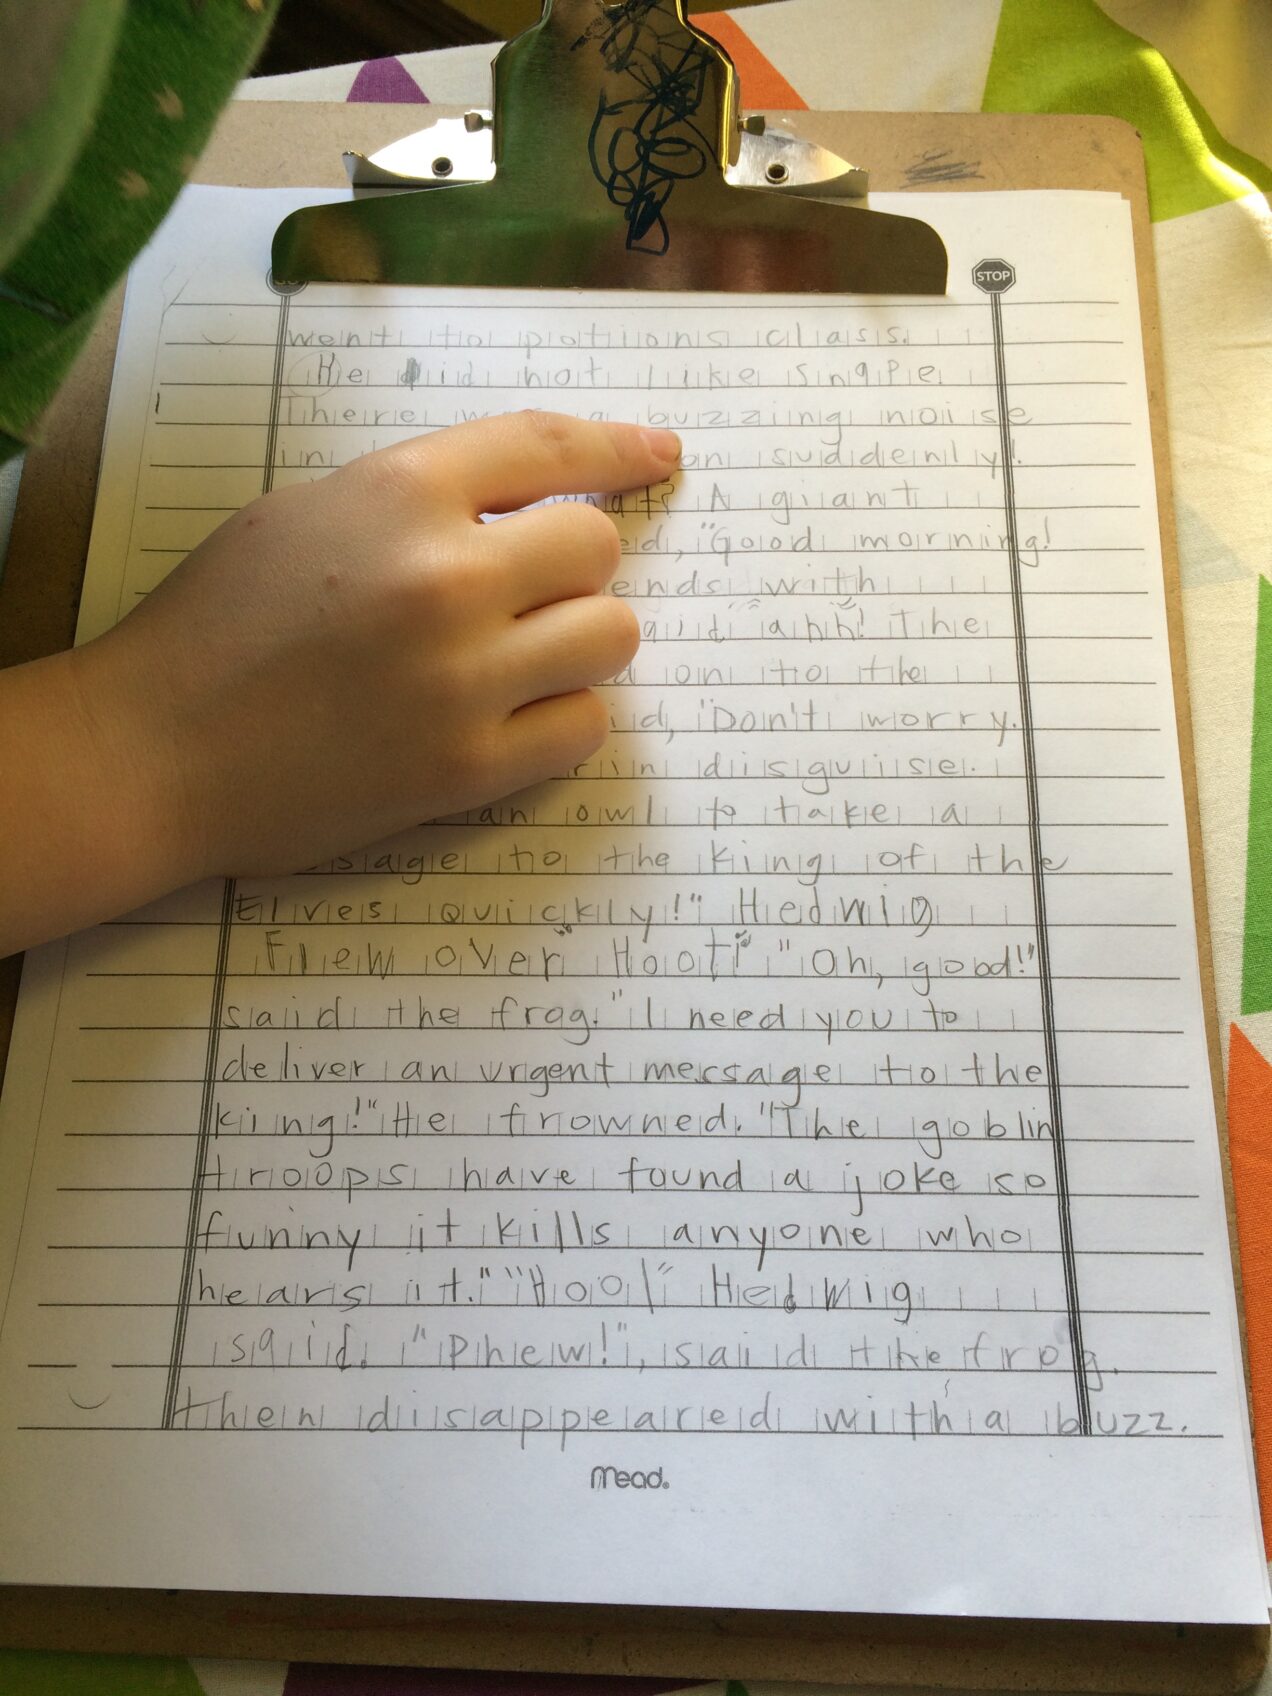 STOP
went to potions class.
He did not like Snape.
There was a buzzing noise
in on suddenly!
what? A giant
"Good morning!
with
ahh! The
on to the
"Don't worry.
in disguise.
an owl to take a
to the king of the
Elves quickly!" Hedwig
Flew over "Hoot!" "Oh, good!"
said the frog. "I need you to
deliver an urgent message to the
king!" He frowned. "The goblin
troops have found a joke so
funny it kills anyone who
hears it." "Hoo!" Hedwig
said. "Phew!", said the frog.
then disappeared with a buzz.
Mead